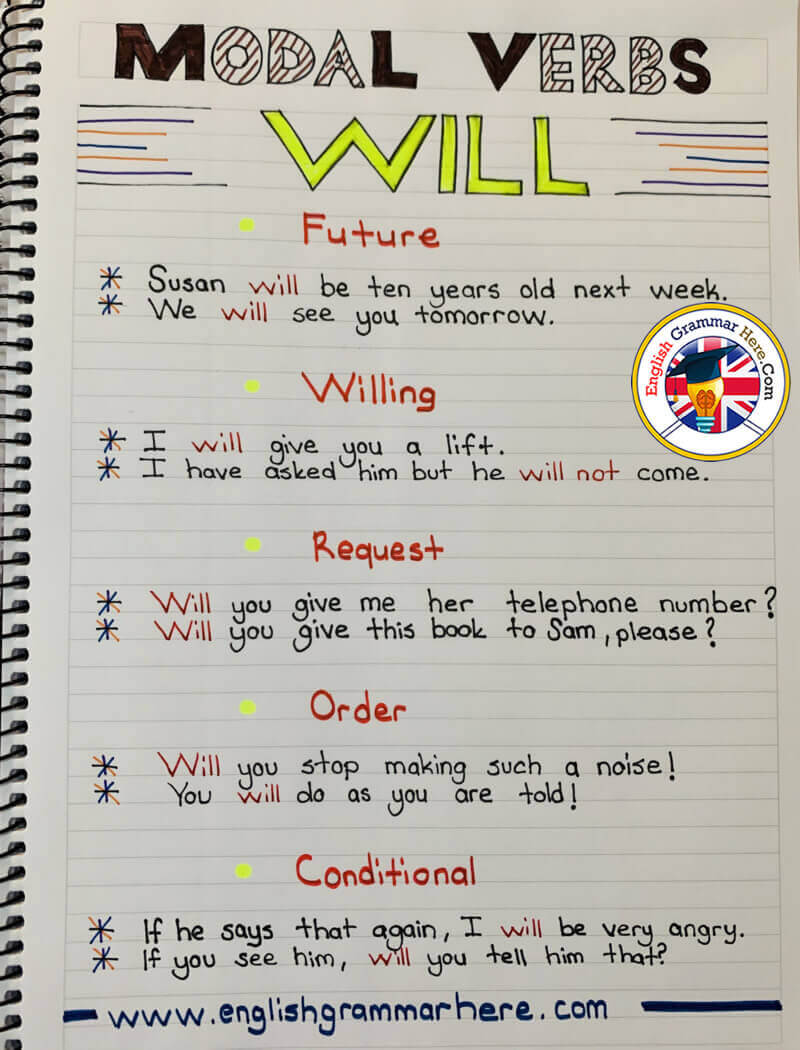 MODAL VERBS
WILL
Future
Susan will be ten years old next week.
We will see you tomorrow.
English Grammar Here.Com
Willing
I will give you a lift.
I have asked him but he will not come.
Request
Will you give me her telephone number?
Will you give this book to Sam, please?
Order
Will you stop making such a noise!
You will do as you are told!
Conditional
If he says that again, I will be very angry.
If you see him, will you tell him that?
www.englishgrammarhere.com